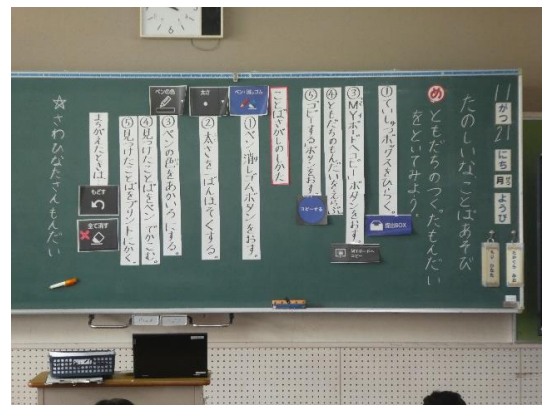 11がつ21にち月ようび
たのしいなことばあそび
め ともだちのつくったもんだい
をといてみよう。
①ていしゅつボックスをひらく。
提出BOX
③MYボードへコピーボタンをおす。
MYボードへコピー
④ともだちのもんだいをえらぶ。
⑤コピーするボタンをおす。
コピーする
ことばさがしのしかた
①ペン・消しゴムボタンをおす。
ペン・消しゴム
②太さを一ばんほそくする。
太さ
③ペンの色をあかいろにする。
ペンの色
④見つけたことばをペンでかこむ。
⑤見つけたことばをプリントにかく。
まちがえたときは、
もどす
全て消す
☆さわひなたさんもんだい